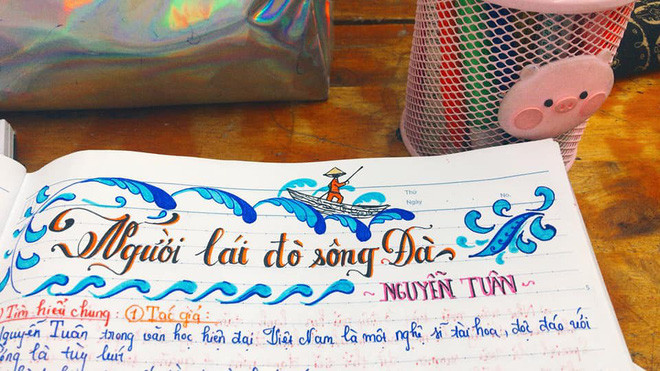 Thứ
Ngày
No.
Người lái đò sông Đà
~ NGUYỄN TUÂN ~
) Tìm hiểu chung : ① Tác giả :
Nguyễn Tuân trong văn học hiện đại Việt Nam là một nghệ sĩ tài hoa, độc đáo với
là tùy bút